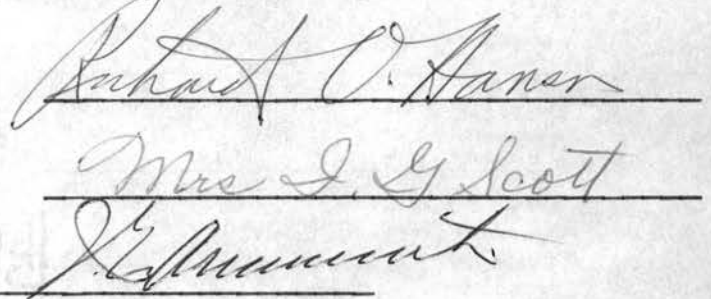 Richard O. Hansn
Mrs I. G Scott
J. E.